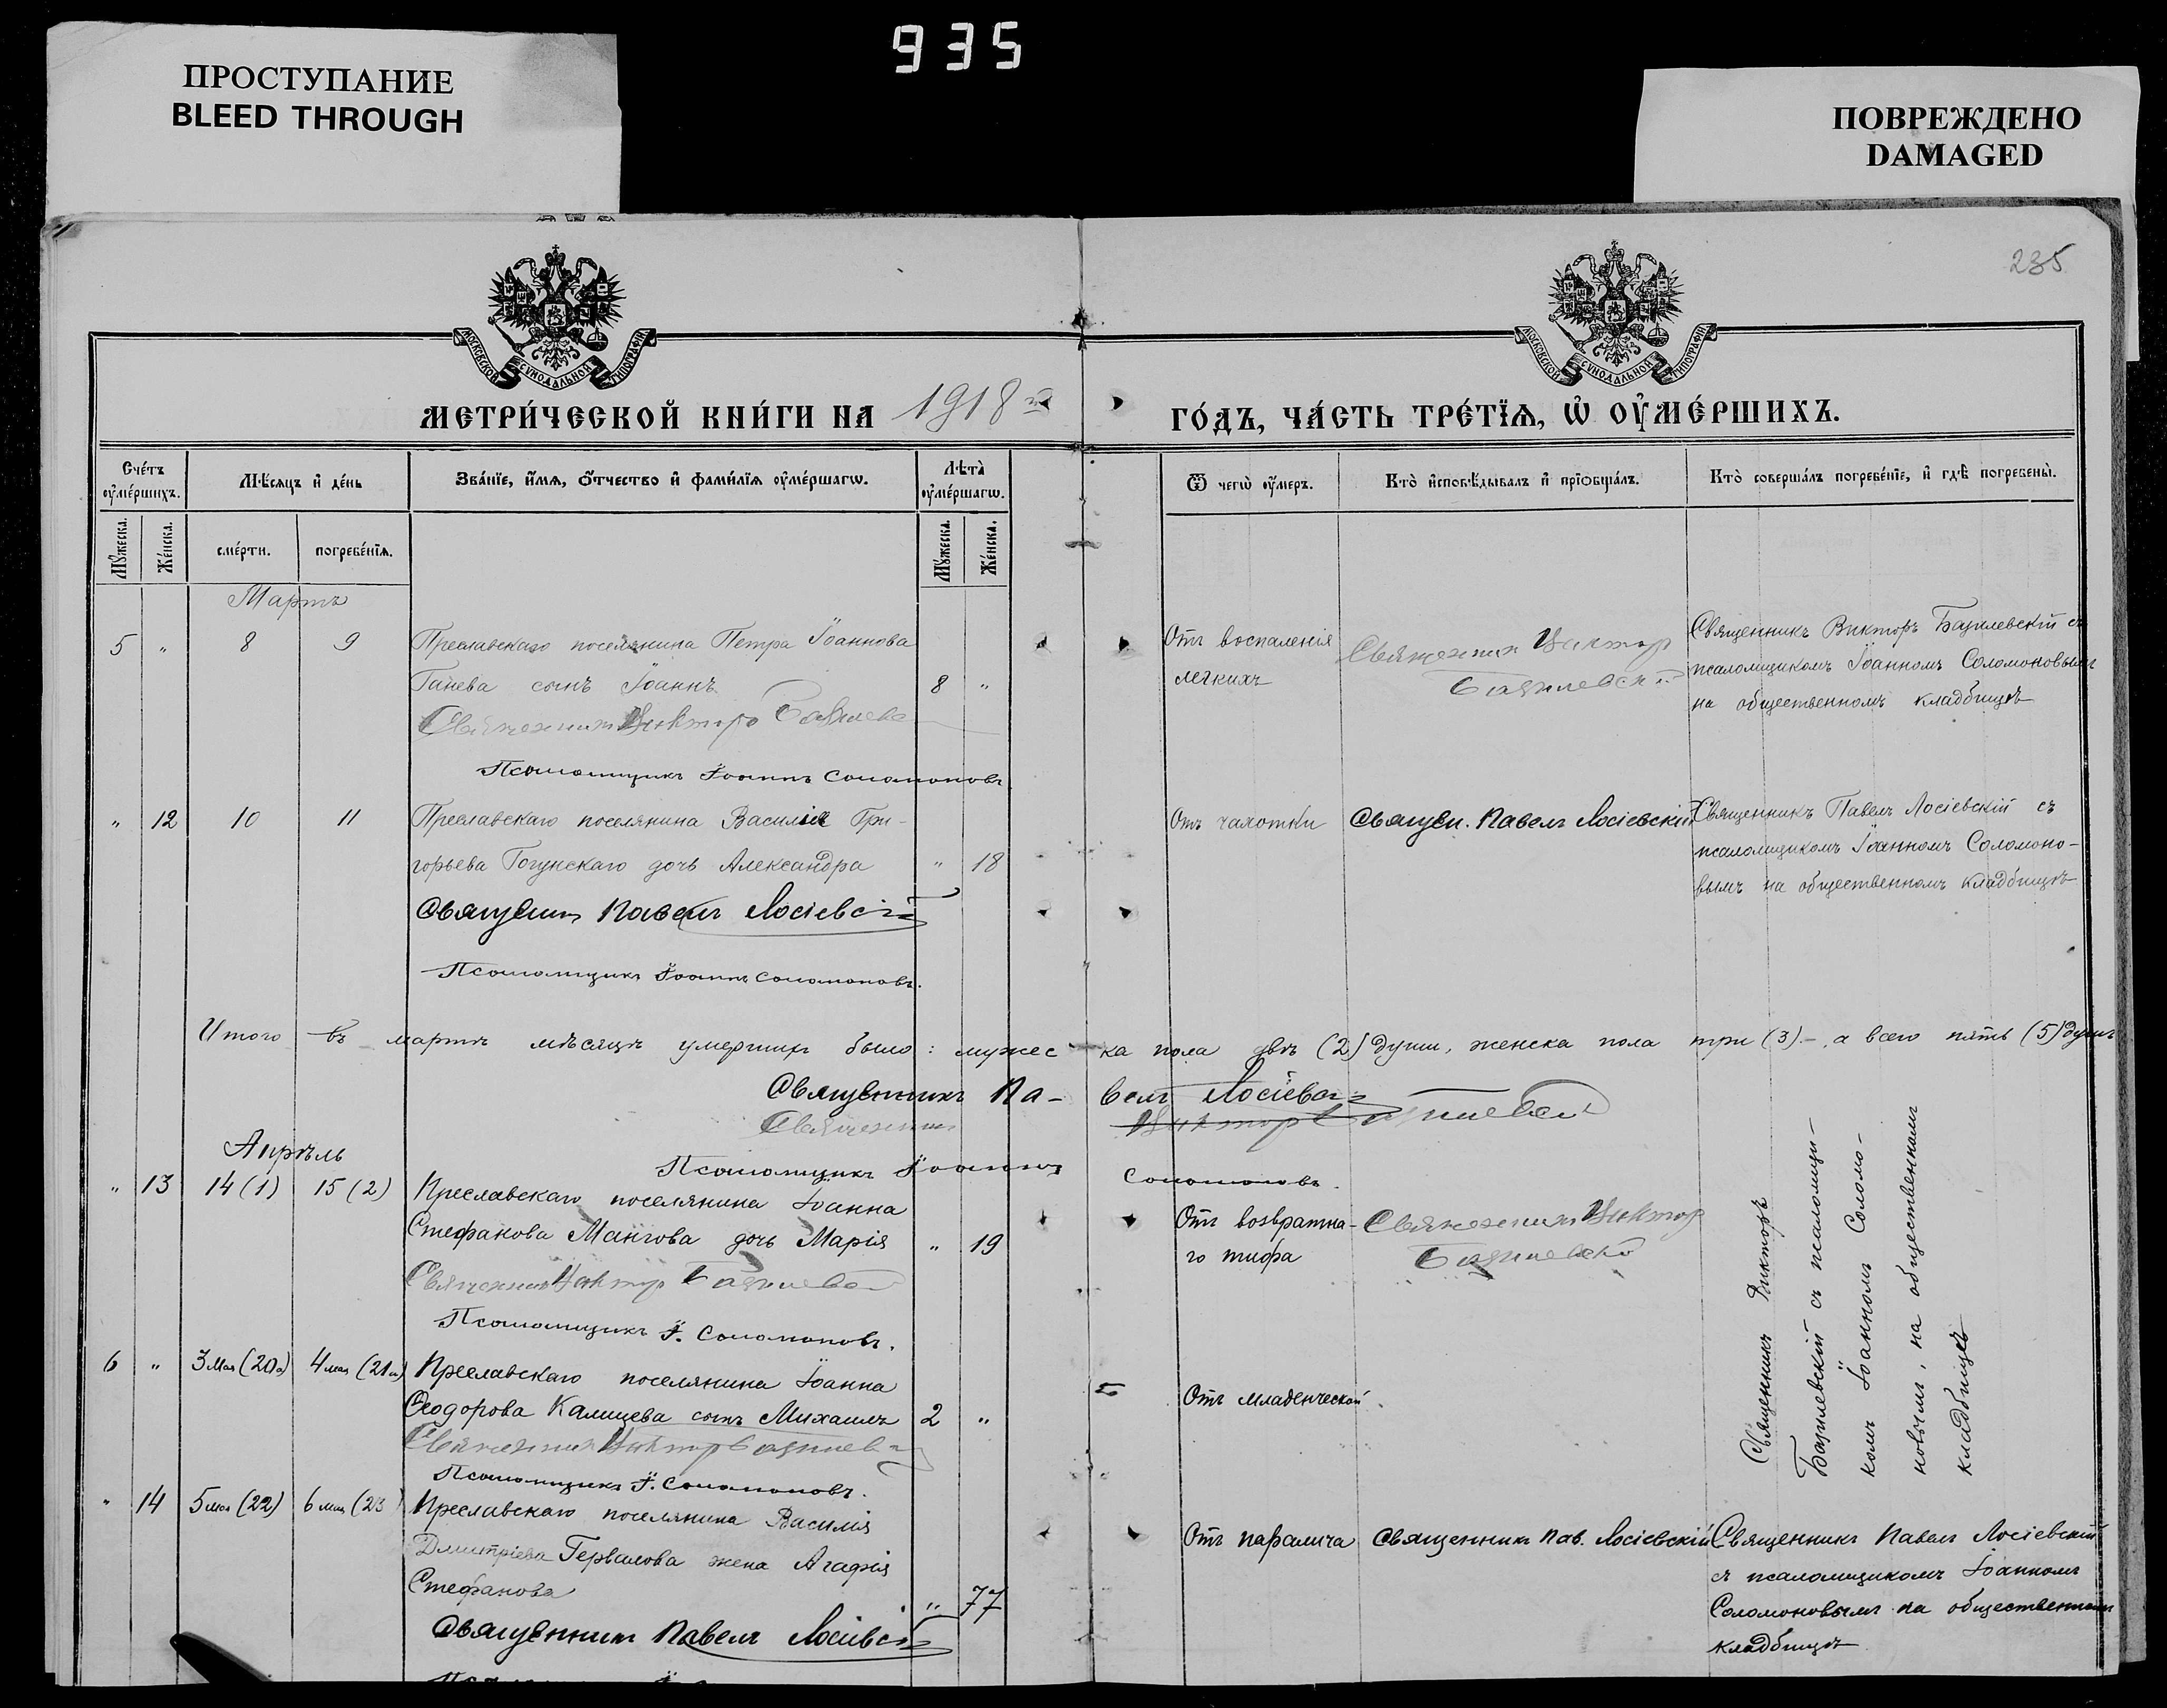 935
ПРОСТУПАНИЕ
BLEED THROUGH
ПОВРЕЖДЕНО
DAMAGED
235
МОСКОВСКОЙ СѴНОДАЛЬНОЙ ТИПОГРАФІИ
МОСКОВСКОЙ СѴНОДАЛЬНОЙ ТИПОГРАФІИ
МЕТРИ́ЧЕСКОЙ КНИ́ГИ НА 1918 й
ГО́ДЪ, ЧА́СТЬ ТРЕ́ТЇѦ, Ѽ ОУ҆МЕ́РШИХЪ.
Сче́тъ оу҆ме́ршихъ.
Мѣ́сѧцъ и҆ де́нь
Зва́нїе, и҆́мѧ, ѻ҆́тчество и҆ фами́лїѧ оу҆ме́ршагѡ.
Лѣ́та̀ оу҆ме́ршагѡ.
Ѿ чегѡ̀ оу҆́меръ.
Кто̀ и҆сповѣ́дывалъ и҆ прїѻбща́лъ.
Кто̀ соверша́лъ погребе́нїе, и҆ гдѣ̀ погребены̀.
Мꙋ́жеска.
Же́нска.
сме́рти.
погребе́нїѧ.
Мꙋ́жеска.
Же́нска.
Мартъ
5 " 8 9 Преславскаго поселянина Петра Іоаннова
Ганева сынъ Іоаннъ 8 "
Священникъ Викторъ Базилевс
Псаломщикъ Іоаннъ Соломоновъ
Отъ воспаленія
легкихъ
Священникъ Викторъ
Базилевскій
Священникъ Викторъ Базилевскій съ
псаломщикомъ Іоанномъ Соломоновымъ
на общественномъ кладбищѣ
" 12 10 11 Преславскаго поселянина Василія Гри-
горьева Гогунскаго дочь Александра " 18
Священникъ Павелъ Лосіевскій
Псаломщикъ Іоаннъ Соломоновъ.
Отъ чахотки
Священ. Павелъ Лосіевскій
Священникъ Павелъ Лосіевскій съ
псаломщикомъ Іоанномъ Соломоно-
вымъ на общественномъ кладбищѣ
Итого въ мартѣ мѣсяцѣ умершихъ было: мужес ка пола двѣ (2) души, женска пола три (3) –, а всего пять (5) душъ
Священникъ Па- велъ Лосіевскій
Священникъ Викторъ Базилевскій
Псаломщикъ Іоаннъ Соломоновъ.
Апрѣль
" 13 14 (1) 15 (2) Преславскаго поселянина Іоанна
Стефанова Мангова дочь Марія " 19
Священникъ Викторъ Базилевскій
Псаломщикъ І. Соломоновъ.
Отъ возвратна-
го тифа
Священникъ Викторъ
Базилевскій
Священникъ Викторъ
Базилевскій съ псаломщи-
комъ Іоанномъ Соломо-
новымъ, на общественномъ
кладбищѣ
6 " 3 мая (20 а) 4 мая (21 а) Преславскаго поселянина Іоанна
Ѳеодорова Калицева сынъ Михаилъ 2 "
Священникъ Викторъ Базилевскій
Псаломщикъ І. Соломоновъ.
Отъ младенческой.
" 14 5 мая (22) 6 мая (23) Преславскаго поселянина Василія
Дмитріева Гервалова жена Агафія
Стефанова " 77
Священникъ Павелъ Лосіевскій
Отъ паралича
Священникъ Пав. Лосіевскій
Священникъ Павелъ Лосіевскій
съ псаломщикомъ Іоанномъ
Соломоновымъ на общественномъ
кладбищѣ